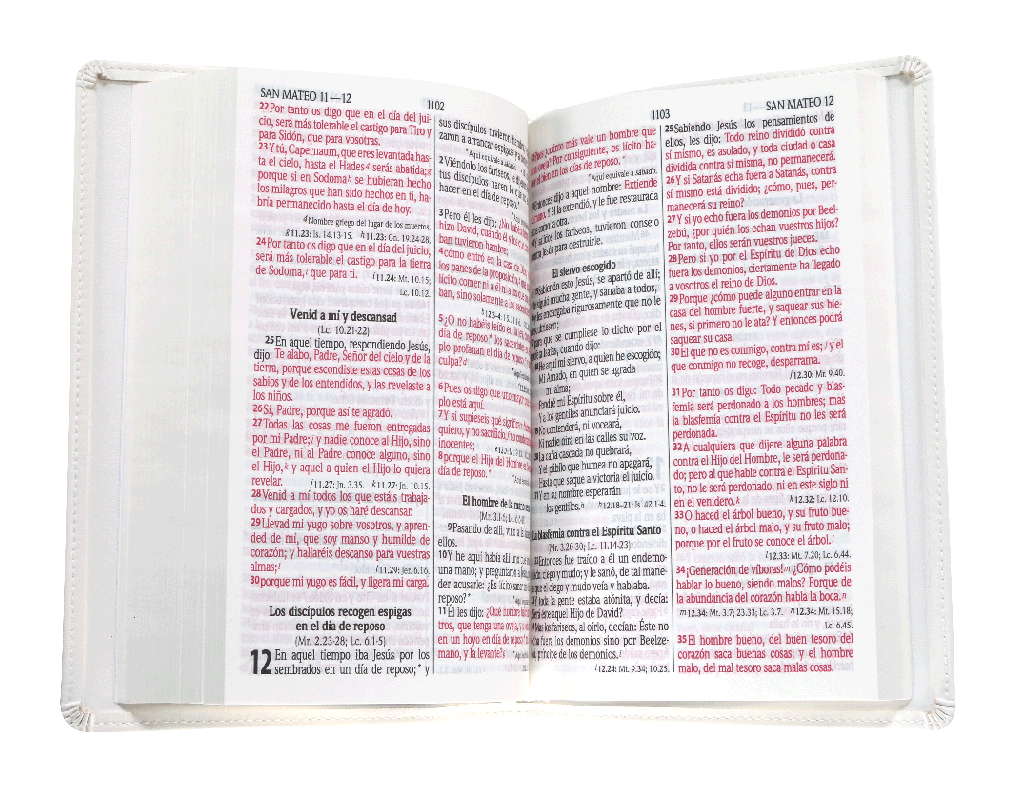 SAN MATEO 11—12
1102
22Por tanto os digo que en el día del jui-
cio, será más tolerable el castigo para Tiro y
para Sidón, que para vosotras.
23Y tú, Capernaum, que eres levantada has-
ta el cielo, hasta el Hades serás abatida;
porque si en Sodoma se hubieran hecho
los milagros que han sido hechos en ti, ha-
bría permanecido hasta el día de hoy.
Nombre griego del lugar de los muertos.
11.23: Is. 14.13-15. 11.23: Gn. 19.24-28.
24Por tanto os digo que en el día del juicio,
será más tolerable el castigo para la tierra
de Sodoma, que para ti. 11.24: Mt. 10.15;
Lc. 10.12.
Venid a mí y descansad
(Lc. 10.21-22)
25En aquel tiempo, respondiendo Jesús,
dijo: Te alabo, Padre, Señor del cielo y de la
tierra, porque escondiste estas cosas de los
sabios y de los entendidos, y las revelaste a
los niños.
26Sí, Padre, porque así te agradó.
27Todas las cosas me fueron entregadas
por mi Padre; y nadie conoce al Hijo, sino
el Padre, ni al Padre conoce alguno, sino
el Hijo, y aquel a quien el Hijo lo quiera
revelar. 11.27: Jn. 3.35. 11.27: Jn. 10.15.
28Venid a mí todos los que estáis trabaja-
dos y cargados, y yo os haré descansar.
29Llevad mi yugo sobre vosotros, y apren-
ded de mí, que soy manso y humilde de
corazón; y hallaréis descanso para vuestras
almas; 11.29: Jer. 6.16.
30porque mi yugo es fácil, y ligera mi carga.
Los discípulos recogen espigas
en el día de reposo
(Mr. 2.23-28; Lc. 6.1-5)
12 En aquel tiempo iba Jesús por los
sembrados en un día de reposo;* y
sus discípulos tuvieron
zaron a arrancar espigas y a
*Aquí equivale a sábado.
2Viéndolo los fariseos,
tus discípulos hacen lo que no
hacer en el día de reposo.*
3Pero él les dijo: ¿No habéis
hizo David, cuando él y los
ban tuvieron hambre;
4cómo entró en la casa de Dios,
los panes de la proposición,
lícito comer ni a él ni a los que
ban, sino solamente a los
5¿O no habéis leído en la ley,
día de reposo* los sacerdotes
plo profanan el día de reposo
culpa?
6Pues os digo que uno mayor
plo está aquí.
7Y si supieseis qué significa:
quiero, y no sacrificio, no
inocentes;
8porque el Hijo del Hombre es
día de reposo.*
El hombre de la mano
9Pasando de allí, vino a la
ellos.
10Y he aquí había allí uno que
una mano; y preguntaron a Jesús,
der acusarle: ¿Es lícito sanar en
reposo?*
11Él les dijo: ¿Qué hombre
tros, que tenga una oveja, y
en un hoyo en día de reposo,*
mano, y la levante?
1103
SAN MATEO 12
cuánto más vale un hombre que
oveja? Por consiguiente, es lícito ha-
cer el bien en los días de reposo.*
*Aquí equivale a sábado.
Entonces dijo a aquel hombre: Extiende
mano. Y él la extendió, y le fue restaurada
sana como la otra.
Y salidos los fariseos, tuvieron consejo
contra Jesús para destruirle.
El siervo escogido
Sabiendo esto Jesús, se apartó de allí;
le siguió mucha gente, y sanaba a todos,
y les encargaba rigurosamente que no le
descubriesen;
para que se cumpliese lo dicho por el
profeta Isaías, cuando dijo:
18 He aquí mi siervo, a quien he escogido;
Mi Amado, en quien se agrada
mi alma;
Pondré mi Espíritu sobre él,
Y a los gentiles anunciará juicio.
No contenderá, ni voceará,
Ni nadie oirá en las calles su voz.
20 La caña cascada no quebrará,
Y el pábilo que humea no apagará,
Hasta que saque a victoria el juicio.
21 Y en su nombre esperarán
los gentiles. 12.18-21: Is. 42.1-4.
La blasfemia contra el Espíritu Santo
(Mr. 3.20-30; Lc. 11.14-23)
22Entonces fue traído a él un endemo-
niado, ciego y mudo; y le sanó, de tal mane-
ra que el ciego y mudo veía y hablaba.
Y toda la gente estaba atónita, y decía:
¿Será este aquel Hijo de David?
Mas los fariseos, al oírlo, decían: Éste no
echa fuera los demonios sino por Beelze-
bú, príncipe de los demonios.
12.24: Mt. 9.34; 10.25.
25Sabiendo Jesús los pensamientos de
ellos, les dijo: Todo reino dividido contra
sí mismo, es asolado, y toda ciudad o casa
dividida contra sí misma, no permanecerá.
26Y si Satanás echa fuera a Satanás, contra
sí mismo está dividido; ¿cómo, pues, per-
manecerá su reino?
27Y si yo echo fuera los demonios por Beel-
zebú, ¿por quién los echan vuestros hijos?
Por tanto, ellos serán vuestros jueces.
28Pero si yo por el Espíritu de Dios echo
fuera los demonios, ciertamente ha llegado
a vosotros el reino de Dios.
29Porque ¿cómo puede alguno entrar en la
casa del hombre fuerte, y saquear sus bie-
nes, si primero no le ata? Y entonces podrá
saquear su casa.
30El que no es conmigo, contra mí es; y el
que conmigo no recoge, desparrama.
12.30: Mr. 9.40.
31Por tanto os digo: Todo pecado y blas-
femia será perdonado a los hombres; mas
la blasfemia contra el Espíritu no les será
perdonada.
32A cualquiera que dijere alguna palabra
contra el Hijo del Hombre, le será perdona-
do; pero al que hable contra el Espíritu San-
to, no le será perdonado, ni en este siglo ni
en el venidero. 12.32: Lc. 12.10.
33O haced el árbol bueno, y su fruto bue-
no, o haced el árbol malo, y su fruto malo;
porque por el fruto se conoce el árbol.
12.33: Mt. 7.20; Lc. 6.44.
34¡Generación de víboras! ¿Cómo podéis
hablar lo bueno, siendo malos? Porque de
la abundancia del corazón habla la boca.
12.34: Mt. 3.7; 23.33; Lc. 3.7. 12.34: Mt. 15.18;
Lc. 6.45.
35El hombre bueno, del buen tesoro del
corazón saca buenas cosas; y el hombre
malo, del mal tesoro saca malas cosas.